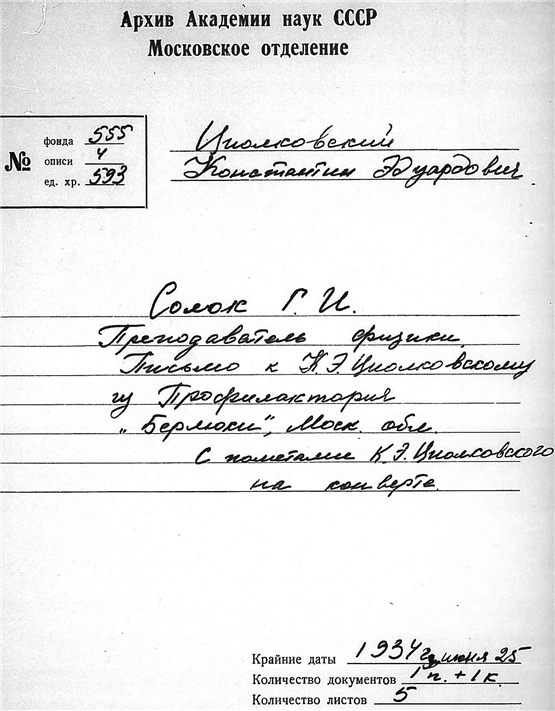 Архив Академии наук СССР
Московское отделение
№
фонда 555
описи 4
ед. хр. 593
Циолковский
Константин Эдуардович
Солок Г. И.
Преподаватель физики.
Письмо к К.Э.Циолковскому
из Профилактория
„Берлюки", Моск. обл.
С пометами К.Э.Циолковского
на конверте.
Крайние даты 1934 г. июня 25
Количество документов 1 п. + 1 к.
Количество листов 5